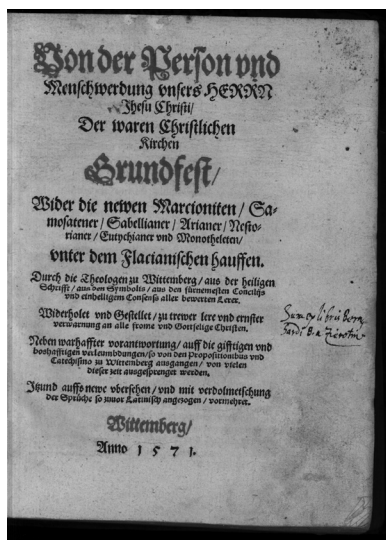 Von der Person vnd
Menschwerdung vnsers HERRN
Jhesu Christi/
Der waren Christlichen
Kirchen
Grundfest/
Wider die newen Marcioniten/ Sa-
mosatener/ Sabellianer/ Arianer/ Nesto-
rianer/ Eutychianer vnd Monotheleten/
vnter dem Flacianischen hauffen.
Durch die Theologen zu Wittemberg/ aus der heiligen
Schrifft/ aus den Symbolis/ aus den fürnemesten Concilijs
vnd einhelligem Consenss aller bewerten Lerer.
Widerholet vnd Gestellet/ zu trewer lere vnd ernster
verwarnung an alle frome vnd Gottselige Christen.
Neben warhaffter vorantwortung/ auff die gifftigen vnd
boshafftigen verleumbdungen/ so von den Propositionibus vnd
Catechismo zu Wittemberg ausgangen/ von vielen
dieser zeit ausgesprenget werden.
Itzund auffs newe vbersehen/ vnd mit verdolmetschung
der Sprüche so zuuor Latinisch angezogen/ vormehret.
Wittemberg/
Anno 1571.
Sum ex libris